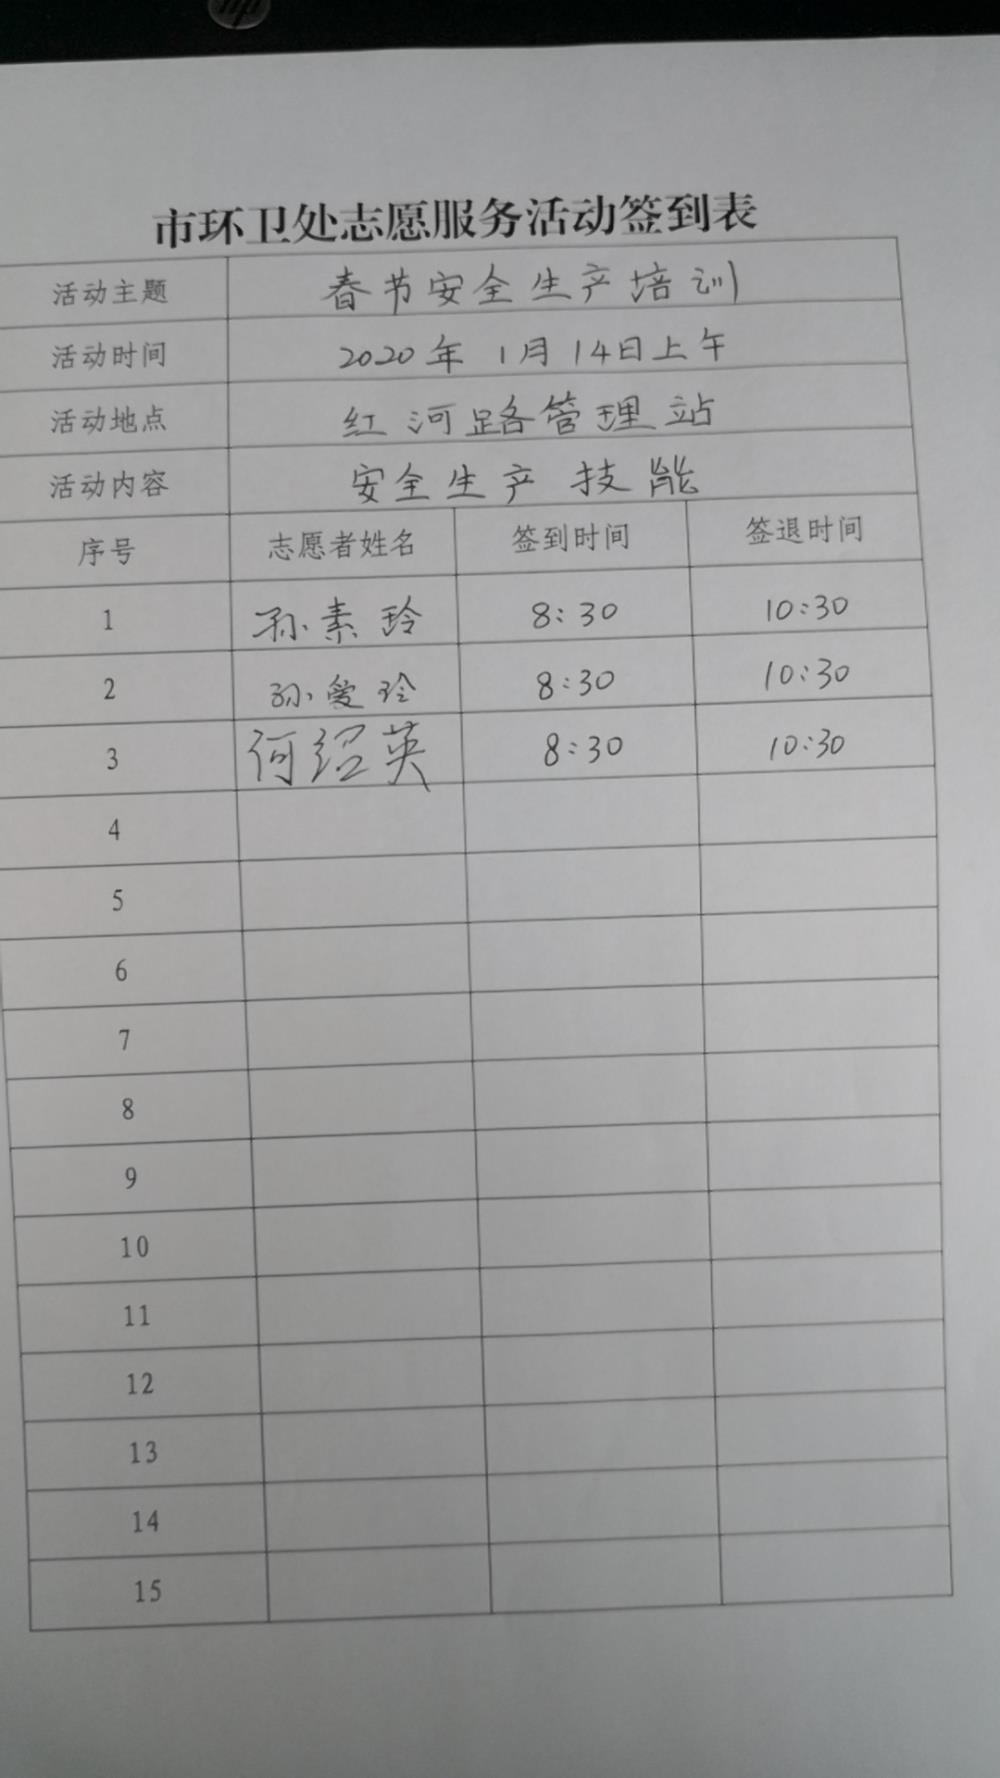 hp
市环卫处志愿服务活动签到表
活动主题 春节安全生产培训
活动时间 2020年 1月14日上午
活动地点 红河路管理站
活动内容 安全生产 技能
序号 志愿者姓名 签到时间 签退时间
1 孙素玲 8:30 10:30
2 孙爱玲 8:30 10:30
3 何绍英 8:30 10:30
4
5
6
7
8
9
10
11
12
13
14
15